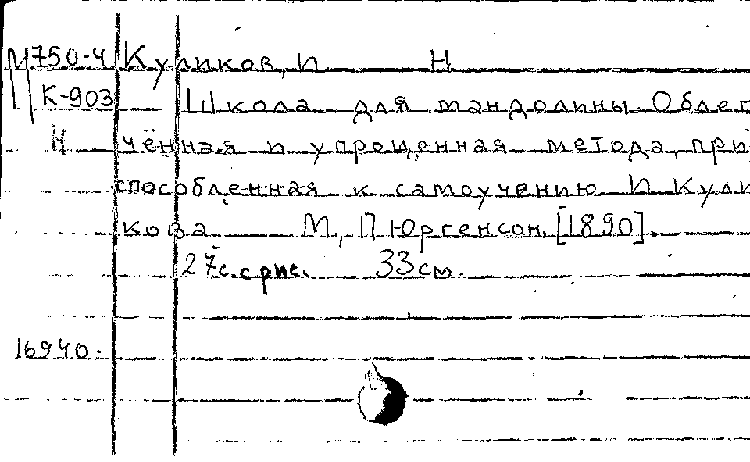 М750-4 Куликов, П Н
К-903 Школа для мандолины. Облег
Н чённая и упрощенная метода, при
способленная к самоучению П Кули
кова М, П Юргенсон, [1890].
27с. с рис. 33 см.
16940.